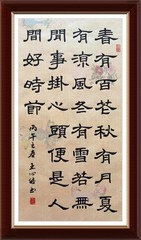 春有百花秋有月夏
有涼風冬有雪若無
閒事掛心頭便是人
間好時節
丙午之春 王心 書